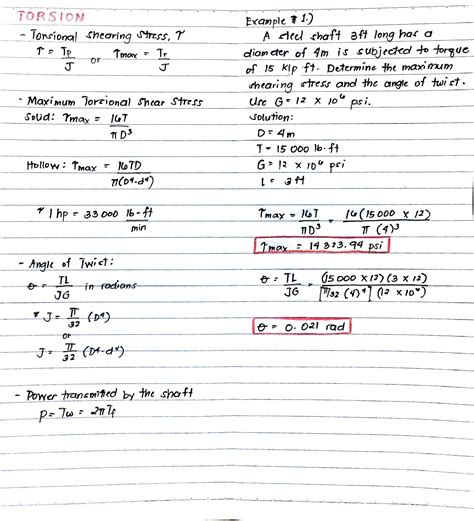 TORSION
- Torsional Shearing Stress, τ
τ = Tρ/J or τmax = Tr/J
- Maximum Torsional Shear Stress
Solid: τmax = 16T/πD³
Hollow: τmax = 16TD/π(D⁴-d⁴)
* 1 hp = 33000 lb-ft/min
- Angle of Twist:
θ = TL/JG in radians
* J = π/32 (D⁴)
or
J = π/32 (D⁴-d⁴)
- Power transmitted by the shaft
P = Tω = 2πTf
Example # 1.)
A steel shaft 3ft long has a
diameter of 4in is subjected to torque
of 15 kip ft. Determine the maximum
shearing stress and the angle of twist.
Use G = 12 x 10⁶ psi.
Solution:
D = 4in
T = 15 000 lb-ft
G = 12 x 10⁶ psi
L = 3 ft
τmax = 16T/πD³ = 16(15000 x 12)/π (4)³
τmax = 14323.94 psi
θ = TL/JG = (15000 x 12)(3 x 12)/[π/32 (4)⁴] (12 x 10⁶)
θ = 0.021 rad